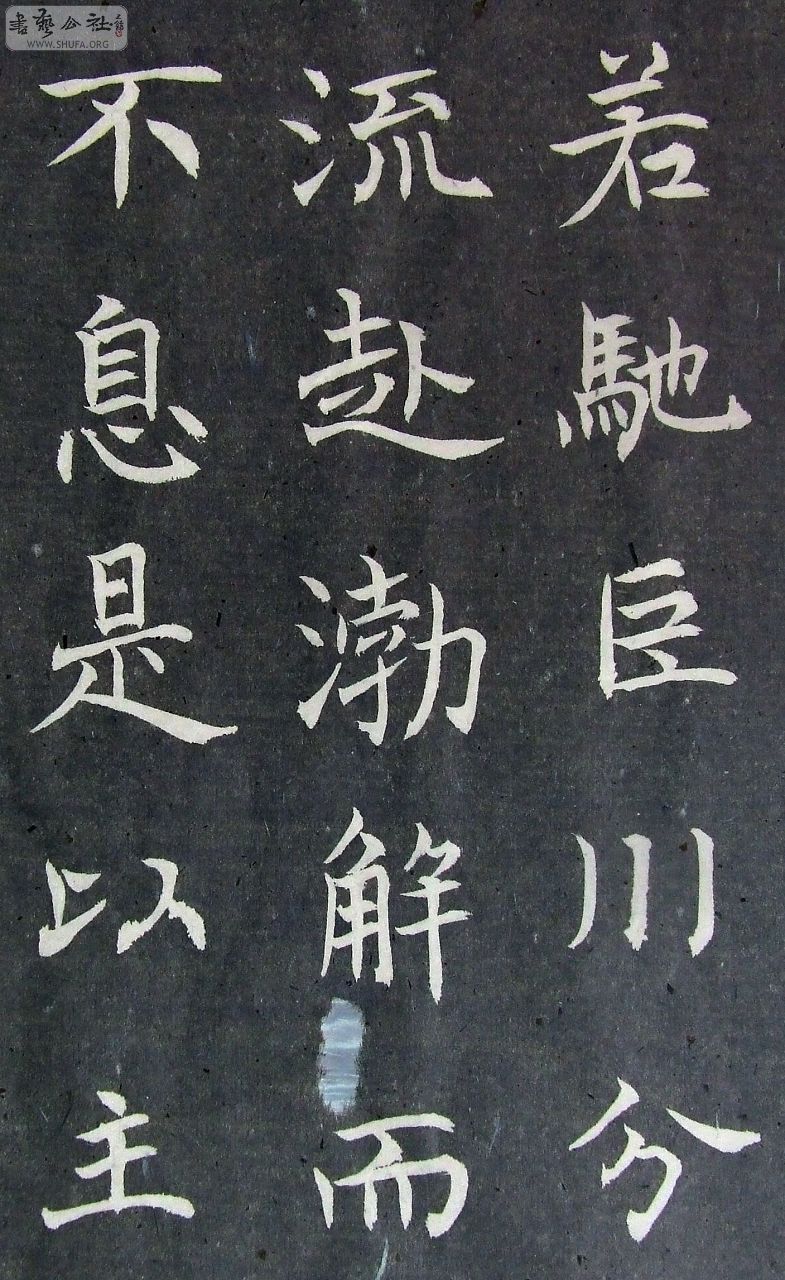 若馳巨川分
流赴渤解而
不息是以主
書藝公社
WWW.SHUFA.ORG